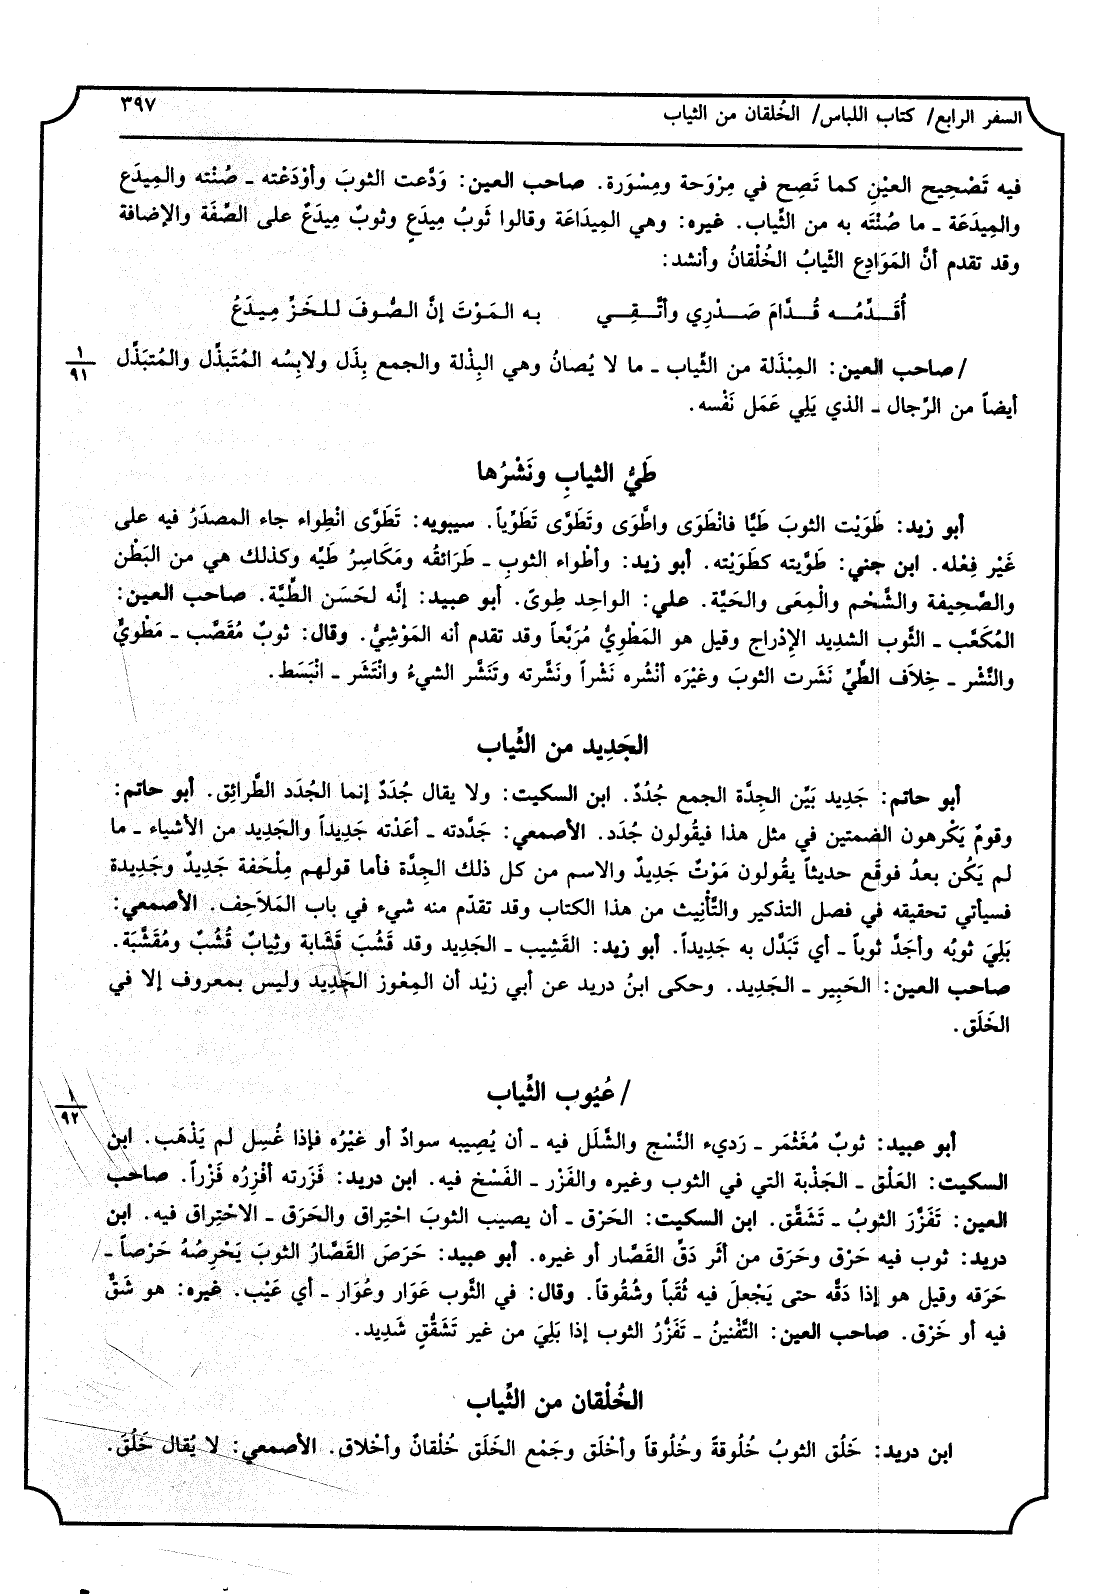 السفر الرابع/ كتاب اللباس/ الخُلقان من الثياب
٣٩٧
فيه تَصْحِيح العيْنِ كما تَصِح في مِرْوَحة ومِسْوَرة. صاحب العين: وَدَّعت الثوبَ وأوْدَعْته ـ صُنْته والمِيدَع
والمِيدَعَة ـ ما صُنْتَه به من الثِّياب. غيره: وهي المِيدَاعَة وقالوا ثَوبُ مِيدَعٍ وثوبٌ مِيدَعٌ على الصِّفَة والإضافة
وقد تقدم أنَّ المَوَادِع الثِّيابُ الخُلْقانُ وأنشد:
أُقَـدِّمُـه قُـدَّامَ صَـدْرِي وأتَّـقِـي به الـمَوْتَ إنَّ الـصُّوفَ لـلـخَـزِّ مِـيـدَعُ
/ صاحب العين: المِبْذَلة من الثِّياب ـ ما لا يُصانُ وهي البِذْلة والجمع بِذَل ولابِسُه المُتَبذِّل والمُتبَذِّل
١
٩١
أيضاً من الرِّجال ـ الذي يَلِي عَمَل نَفْسه.
طَيُّ الثيابِ ونَشْرُها
أبو زيد: طَوَيْت الثوبَ طَيًّا فانْطَوَى واطَّوَى وتَطَوَّى تَطَوِّياً. سيبويه: تَطَوَّى انْطِواء جاء المصدَرُ فيه على
غَيْر فِعْله. ابن جني: طَوَّيته كطَوَيْته. أبو زيد: وأطْواء الثوبِ ـ طَرَائقُه ومَكَاسِرُ طَيِّه وكذلك هي من البَطْن
والصَّحِيفة والشَّحْم والْمِعَى والحَيَّة. علي: الواحِد طِوىً. أبو عبيد: إنَّه لحَسَن الطِّيَّة. صاحب العين:
المُكَعَّب ـ الثَّوب الشديد الإدْراج وقيل هو المَطْوِيُّ مُرَبَّعاً وقد تقدم أنه المَوْشِيُّ. وقال: ثوبٌ مُقَصَّب ـ مَطْويٌّ
والنَّشْر ـ خِلاَف الطَّيِّ نَشَرت الثوبَ وغيْرَه أنْشُره نَشْراً ونَشَّرته وتَنَشَّر الشيءُ وانْتَشَر ـ انْبَسَط.
الجَدِيد من الثِّياب
أبو حاتم: جَدِيد بَيِّن الجِدَّة الجمع جُدُدٌ. ابن السكيت: ولا يقال جُدَدٌ إنما الجُدَد الطَّرائِق. أبو حاتم:
وقومٌ يَكْرهون الضمتين في مثل هذا فيقُولون جُدَد. الأصمعي: جَدَّدته ـ أعَدْته جَدِيداً والجَدِيد من الأشياء ـ ما
لم يَكُن بعدُ فوقَع حديثاً يقُولون مَوْتٌ جَدِيدٌ والاسم من كل ذلك الجِدَّة فأما قولهم مِلْحَفة جَدِيدٌ وجَدِيدة
فسيأتي تحقيقه في فصل التذكير والتَّأنِيث من هذا الكتاب وقد تقدّم منه شيء في باب المَلاَحِف. الأصمعي:
بَلِيَ ثوبُه وأجَدَّ ثوباً ـ أي تَبَدَّل به جَدِيداً. أبو زيد: القَشِيب ـ الجَدِيد وقد قَشُبَ قَشَابة وثِيابٌ قُشُبٌ ومُقَشَّبَة.
صاحب العين: الحَبِير ـ الجَدِيد. وحكى ابنُ دريد عن أبي زيْد أن المِعْوز الجَدِيد وليس بمعروف إلا في
الخَلَق.
/ عُيُوب الثِّياب
١
٩٢
أبو عبيد: ثوبٌ مُغَثْمَر ـ رَديء النَّسْج والشَّلَل فيه ـ أن يُصِيبه سوادٌ أو غيْرُه فإذا غُسِل لم يَذْهَب. ابن
السكيت: العَلْق ـ الجَذْبة التي في الثوب وغيره والفَزْر ـ الفَسْخ فيه. ابن دريد: فَزَرته أفْزِرُه فَزْراً. صاحب
العين: تَفَزَّرَ الثوبُ ـ تَشَقَّق. ابن السكيت: الحَرْق ـ أن يصيب الثوبَ احْتِراق والحَرَق ـ الاحْتِراق فيه. ابن
دريد: ثوب فيه حَرْق وحَرَق من أثَر دَقِّ القَصَّار أو غيره. أبو عبيد: حَرَصَ القَصَّارُ الثوبَ يَحْرِصُهُ حَرْصاً ـ
حَرَقه وقيل هو إذا دَقَّه حتى يَجْعلَ فيه ثُقَباً وشُقُوقاً. وقال: في الثَّوب عَوَار وعُوَار ـ أي عَيْب. غيره: هو شَقٌّ
فيه أو خَرْق. صاحب العين: التَّفْنينُ ـ تَفَزُّرُ الثوب إذا بَلِيَ من غير تَشَقُّقٍ شَدِيد.
الخُلْقان من الثِّياب
ابن دريد: خَلُق الثوبُ خُلُوقةً وخُلُوقاً وأخْلَق وجَمْع الخَلَق خُلْقانٌ وأخْلاق. الأصمعي: لا يُقال خَلُقَ.